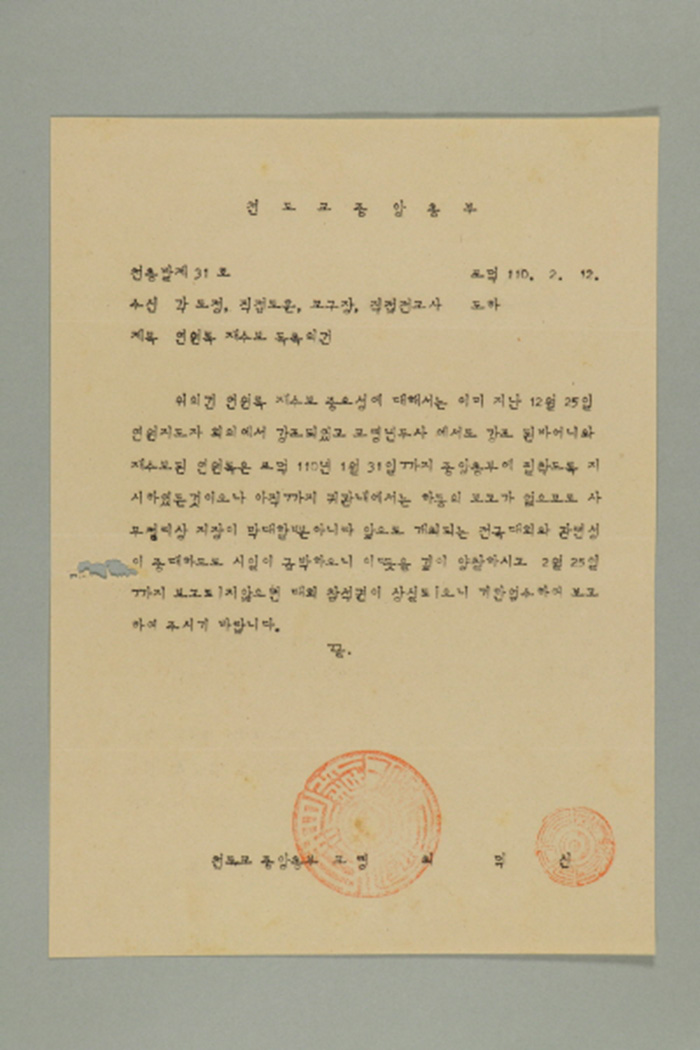 천 도 교 중 앙 총 부
천총발제 31 호 포덕 110. 2. 12.
수신 각 도정, 직접도훈, 교구장, 직접전교사 도하
제목 연원록 재수보 독촉의건
위의건 연원록 재수보 중요성에 대해서는 이미 지난 12월 25일
연원지도자 회의에서 강조되었고 교령년두사 에서도 강조 된바어니와
재수보된 연원록은 포덕 110년 1월 31일까지 중앙총부에 필착토록 지
시하였든것이오나 아직까지 귀관내에서는 하등의 보고가 없으므로 사
무정리상 지장이 막대할뿐아니라 앞으로 개최되는 전국대회와 관련성
이 중대하므로 시일이 급박하오니 이뜻을 깊이 양찰하시고 2월 25일
까지 보고되지않으면 대회 참석권이 상실되오니 기한엄수하여 보고
하여 주시기 바랍니다.
끝.
천도교 중앙총부 교령 최 덕 신